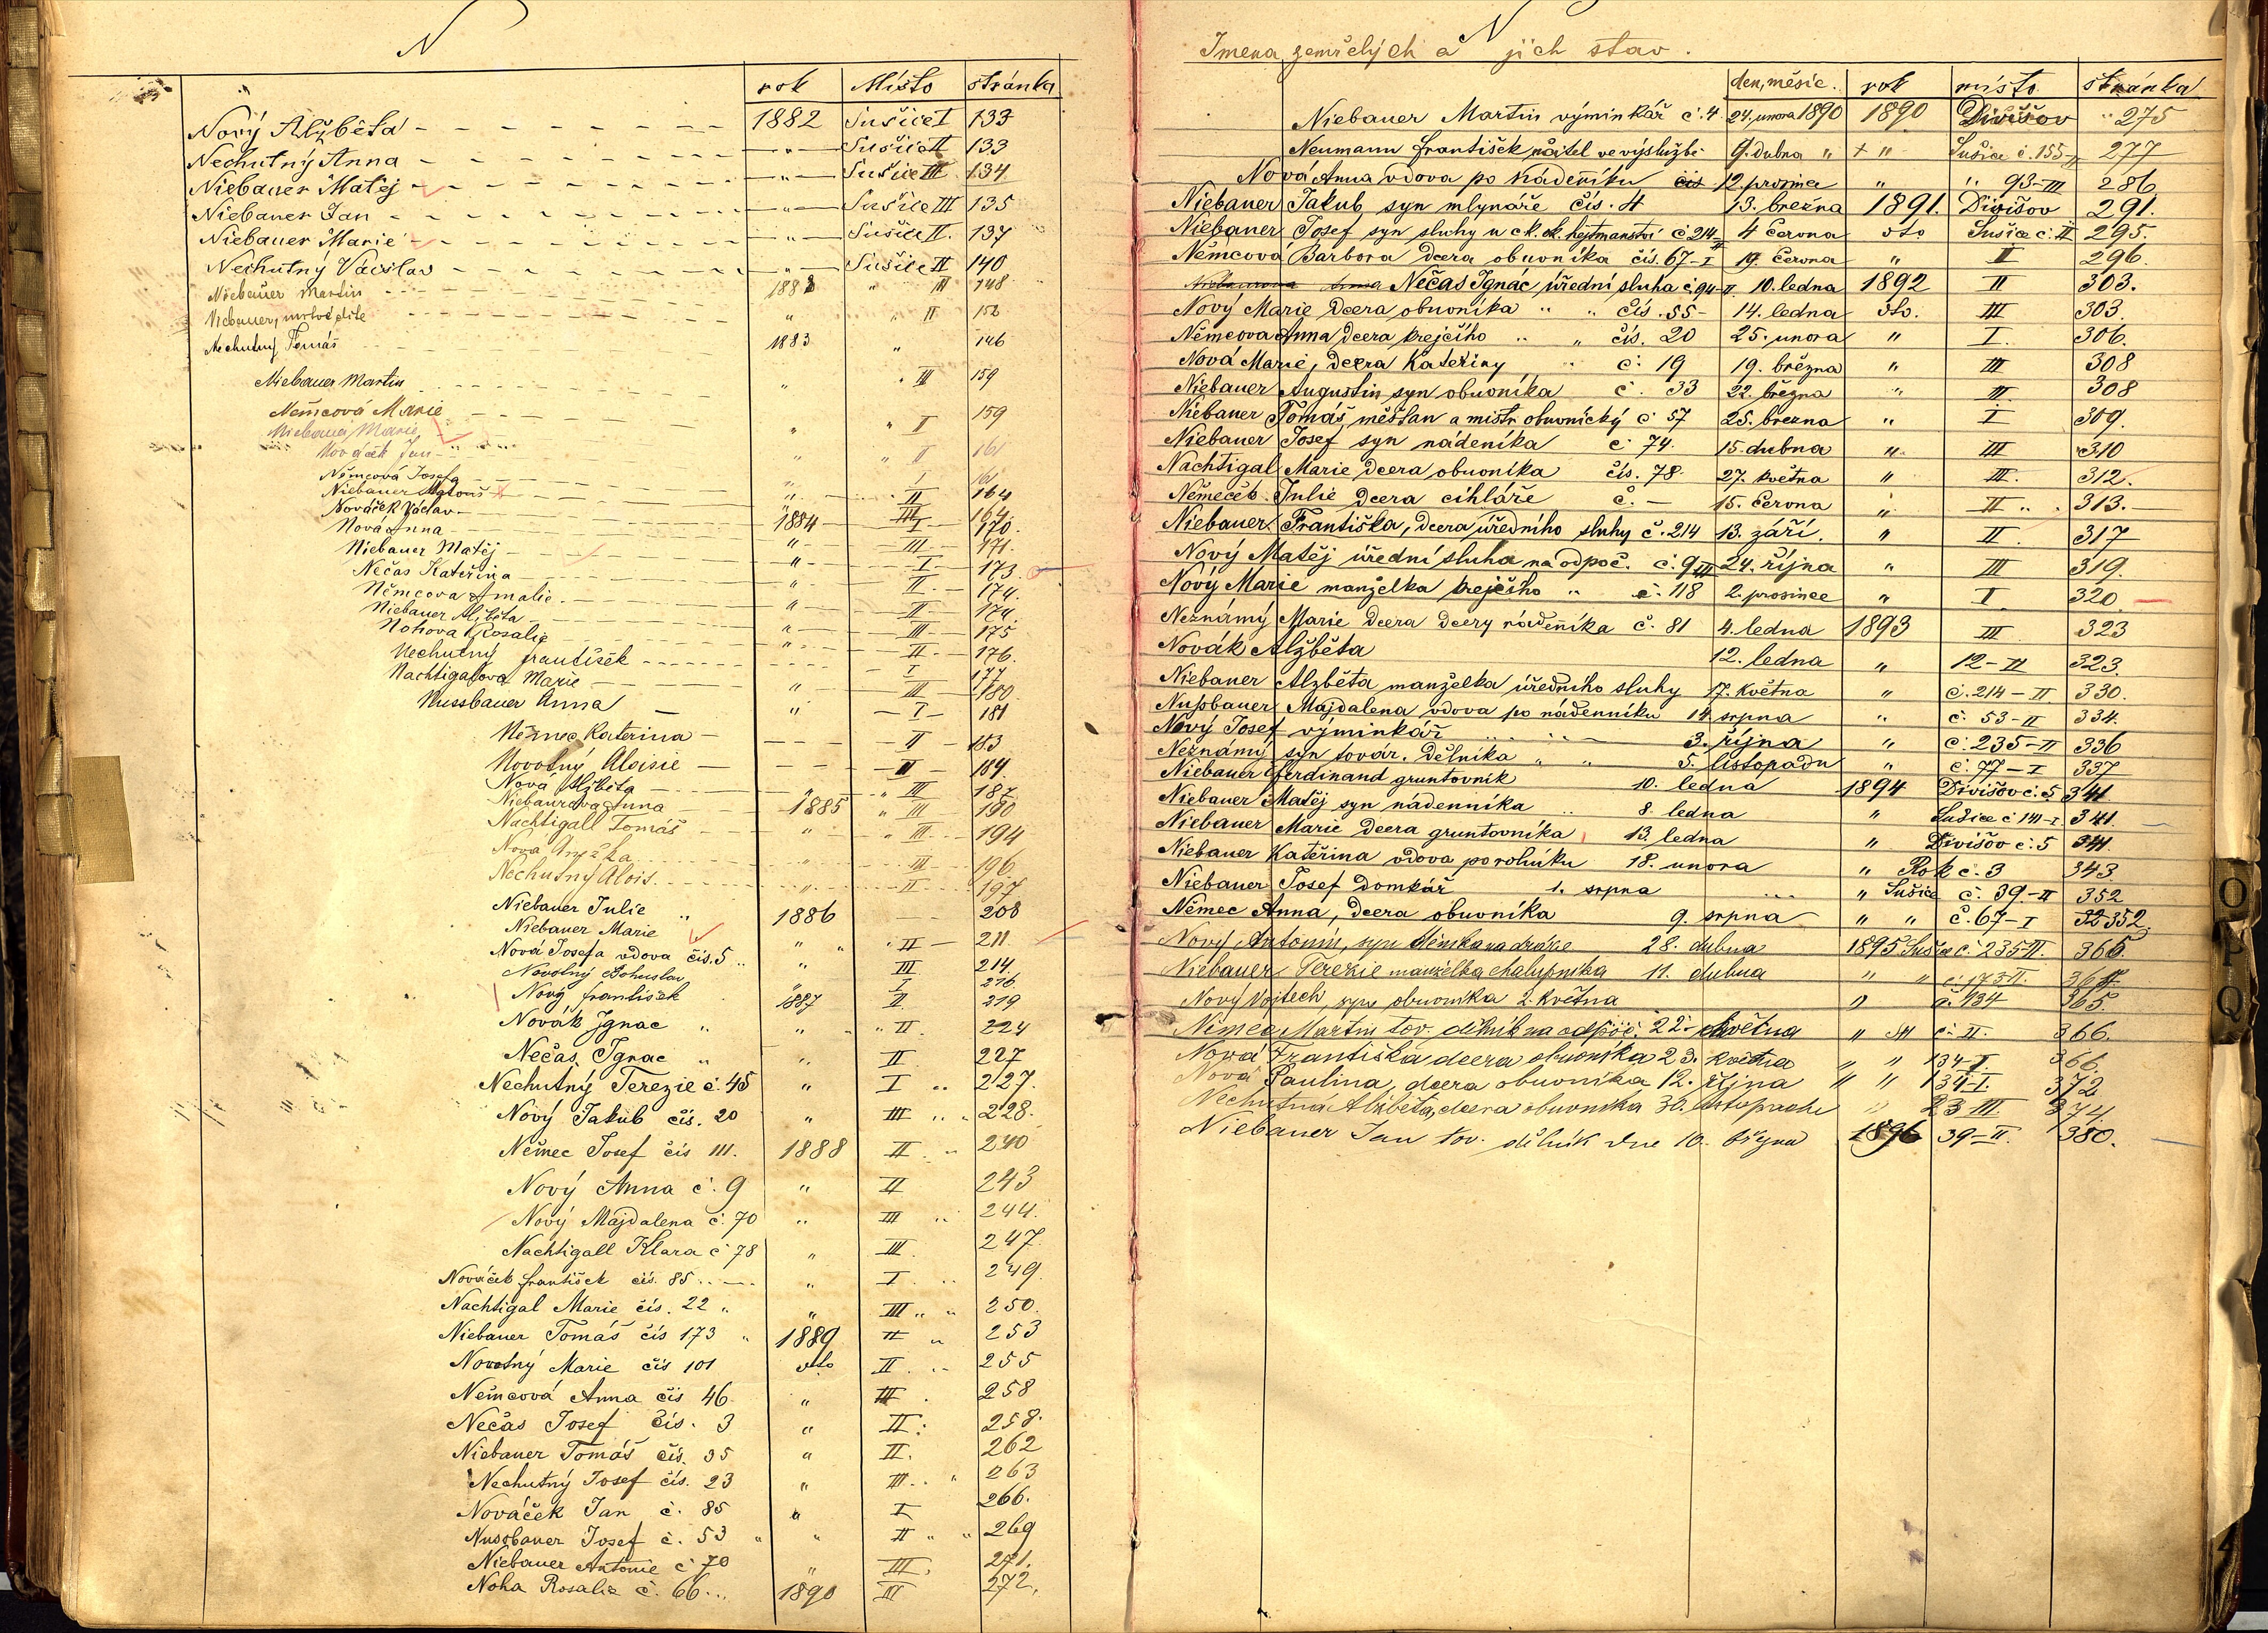 N
rok Místo stránka
Nový Alžběta 1882 Sušice I 133
Nechutný Anna " Sušice II 133
Niebauer Matěj " Sušice III 134
Niebauer Jan " Sušice III 135
Niebauer Marie " Sušice II. 137
Nechutný Václav " Sušice II 140
Niebauer Martin 1883 " III 148
Niebauer, mrtvé dítě " " II 152
Nechutný Tomáš 1883 " 146
Niebauer Martin " " III 159
Němcová Marie " " II 159
Niebauer Marie
Nováček Jan " " II 161
Němcová Josefa " I 161
Niebauer Matouš " II 164
Nováček Václav " III 164.
Nová Anna 1884 I 170.
Niebauer Matěj " III 171.
Nečas Kateřina " I 173.
Němcova Amalie. " II. 174.
Niebauer Alžběta " II 174.
Nohova Rosalie " III 175.
Nechutný František " II 176.
Nachtigalova Marie I 177
Nussbauer Anna " III 180.
" I 181
Němec Katerina II 183
Novotný Aloisie II 184.
Nová Alžběta " " III 187.
Niebaurova Anna 1885 " III 190
Nachtigall Tomáš " " III 194
Nova Anežka " III 196.
Nechutný Alois. " II 197.
Niebauer Julie " 1886 208
Niebauer Marie " " " II 211.
Nová Josefa vdova čís. 5 " " III 214.
Novotný Bohuslav " I 216.
Nový František 1887 II. 219
Novák Ignac " " " II. 224
Nečas Ignac " " II 227
Nechutný Terezie č. 45 " I 227.
Nový Jakub čís. 20 " III 228.
Němec Josef čís 111. 1888 II 240
Nový Anna č. 9 " II 243
Nový Majdalena č. 70 " III 244.
Nachtigall Klara č 78 " III. 247.
Nováček František čís. 85 " I 249.
Nachtigal Marie čís. 22 " " III 250.
Niebauer Tomáš čís 173 " 1889 II " 253
Novotný Marie čís 101 dto II 255
Němcová Anna čís 46. " III 258
Nečas Josef čís. 3 " II. 258.
Niebauer Tomáš čís. 35 " II. 262
Nechutný Josef čís. 23 " III " 263
Nováček Jan č. 85 " I 266.
Nussbauer Josef č. 53 " " II " " 269
Niebauer Antonie č 70 " III. 271.
Noha Rosalie č. 66 1890 III 272.
N
Imena zemřelých a jich stav.
den, měsíc. rok místo stránka
Niebauer Martin výminkář č. 4 24. unora 1890 1890 Divišov " 275
Neumann František učitel ve výslužbě 9. dubna " + " Sušice č. 155-II 277
Nová Anna vdova po nádeníku 12. prosince " " 93-III 286
Niebauer Jakub, syn mlynáře čís. 4 13. března 1891. Divišov 291.
Niebauer Josef syn sluhy u c. k. ok. hejtmanství č 214-II 4 června dto Sušice č. II 295.
Němcová Barbora dcera obuvníka čís. 67-I 19. června " II 296.
Niebaurova Anna Nečas Ignác úřední sluha č. 94-II. 10. ledna 1892 II 303.
Nový Marie dcera obuvníka " " čís. 55- 14. ledna dto. III 303.
Němcova Anna dcera krejčího " " čís. 20 25. unora " I. 306.
Nová Marie, dcera Kateřiny " č. 19 19. března " III 308
Niebauer Augustin syn obuvníka č. 33 22. března " III 308
Niebauer Tomáš, měšťan a mistr obuvnický č 57 25. března " I 309.
Niebauer Josef syn nádeníka č. 74. 15. dubna " III 310
Nachtigal Marie dcera obuvníka čís. 78. 27. května " III. 312.
Němeček Julie dcera cihláře č. – 15. června " II 313.
Niebauer Františka, dcera úředního sluhy č. 214 13. září. " II. 317
Nový Matěj úřední sluha na odpoč. č. 9 III 24. října " III 319.
Nový Marie manželka krejčího " č. 118 2. prosince " I 320
Neznámý Marie dcera dcery nádeníka č. 81 4. ledna 1893 III 323
Novák Alžběta 12. ledna " 12-II 323.
Niebauer Alzběta manželka úředního sluhy 17. května " č. 214-II 330.
Nussbauer Majdalena vdova po nádenníku 14 srpna " č. 53-II 334.
Nový Josef výminkář 3. října " č. 235-II 336
Neznámý syn továr. dělníka " " 5. listopadu " č. 77-I 337
Niebauer Ferdinand gruntovník 10. ledna 1894 Divišov č. 5 341
Niebauer Matěj syn nádenníka 8. ledna " Sušice č 141-I 341.
Niebauer Marie dcera gruntovníka 13. ledna " Divišov č. 5 341.
Niebauer Kateřina vdova po rolníku 18. unora " Rok č. 3 343.
Niebauer Josef domkář 1. srpna " Sušice č. 39-II 352
Němec Anna, dcera obuvníka 9. srpna " " č. 67-I 352.
Nový Antonín, syn 28. dubna 1895 Sušice č 235-II. 365.
Niebauer Terezie manželka chalupníka 11. dubna " " č. 173 II.
Nový Vojtech, syn obuvníka 2. května " č. 134 365.
Němec Martin tov. dělník na odpoč. 22. května " č. II. 366.
Nová Františka dcera obuvníka 23. května " " 134-I. 366.
Nová Paulina, dcera obuvníka 12. října " " 134-I. 372
Nechutná Alžběta, dcera obuvníka 30. listopadu " 23 III. 374
Niebauer Jan tov. dělník dne 10. března 1896 39-II. 380.
O
P
Q